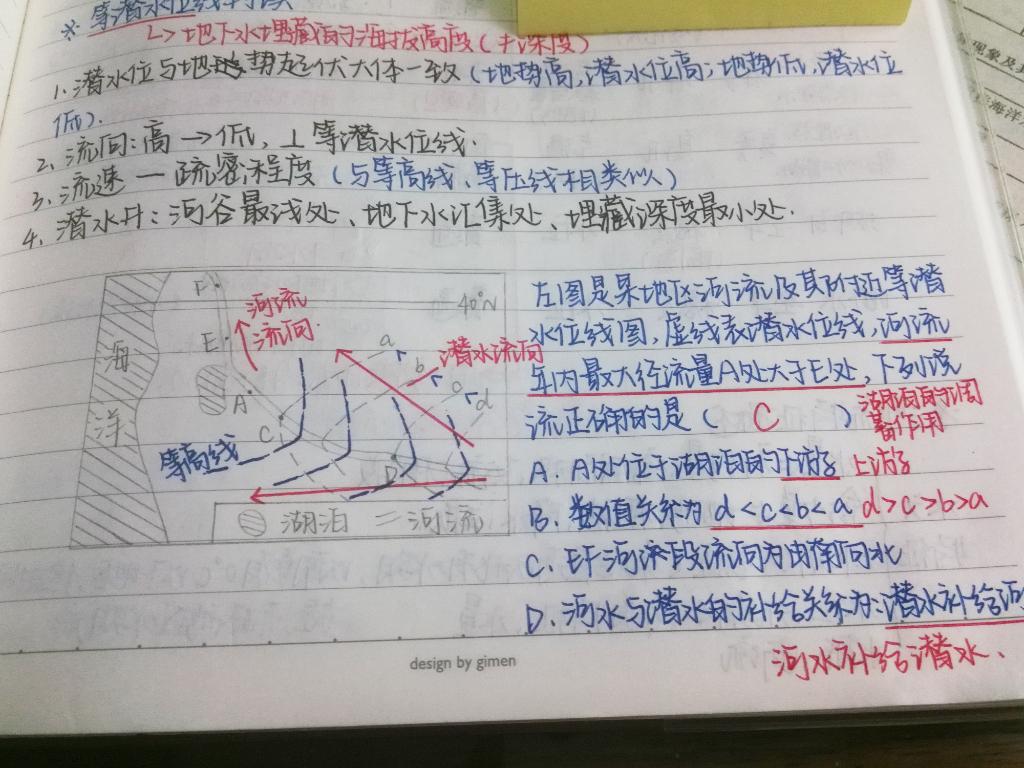 * 等潜水位线判读
↳地下水埋藏的海拔高度(≠深度)
1. 潜水位与地势起伏大体一致(地势高,潜水位高;地势低,潜水位
低).
2. 流向:高→低,⊥等潜水位线.
3. 流速—疏密程度(与等高线、等压线相类似)
4. 潜水井:河谷最浅处、地下水汇集处、埋藏深度最小处.
左图是某地区河流及其附近等潜
水位线图,虚线表潜水位线,河流
年内最大径流量A处大于E处,下列说
流正确的是( C ) 湖泊的调
蓄作用
A. A处位于湖泊的下游 上游
B. 数值关系为d<c<b<a d>c>b>a
C. EF河流段流向为由南向北
D. 河水与潜水的补给关系为:潜水补给河
河水补给潜水.
F
河流
流向
40°N
海
洋
E
A
C
等高线
a
b
c
d
潜水流向
D
湖泊 = 河流
design by gimen
现象及
海洋